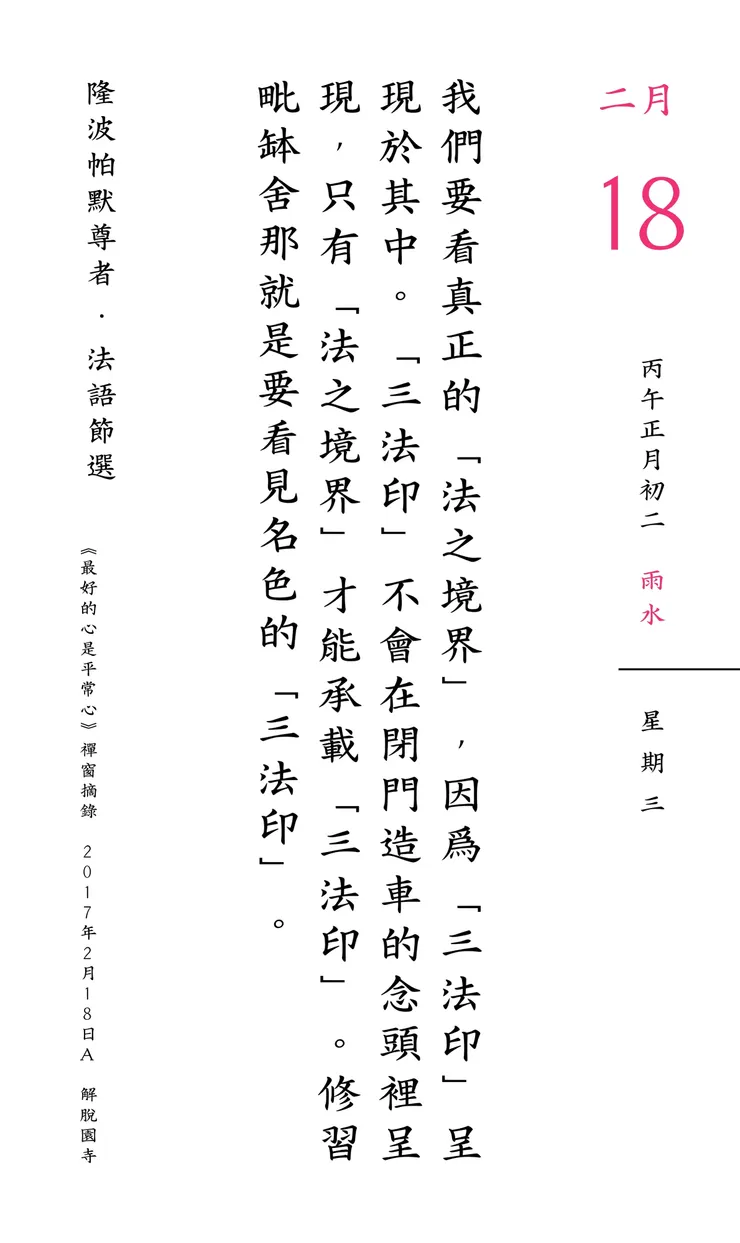 二月
18
丙午正月初二 雨水
星期三
我們要看真正的「法之境界」，因爲「三法印」呈
現於其中。「三法印」不會在閉門造車的念頭裡呈
現，只有「法之境界」才能承載「三法印」。修習
毗缽舍那就是要看見名色的「三法印」。
隆波帕默尊者．法語節選
《最好的心是平常心》禪窗摘錄 2017年2月18日A 解脫園寺